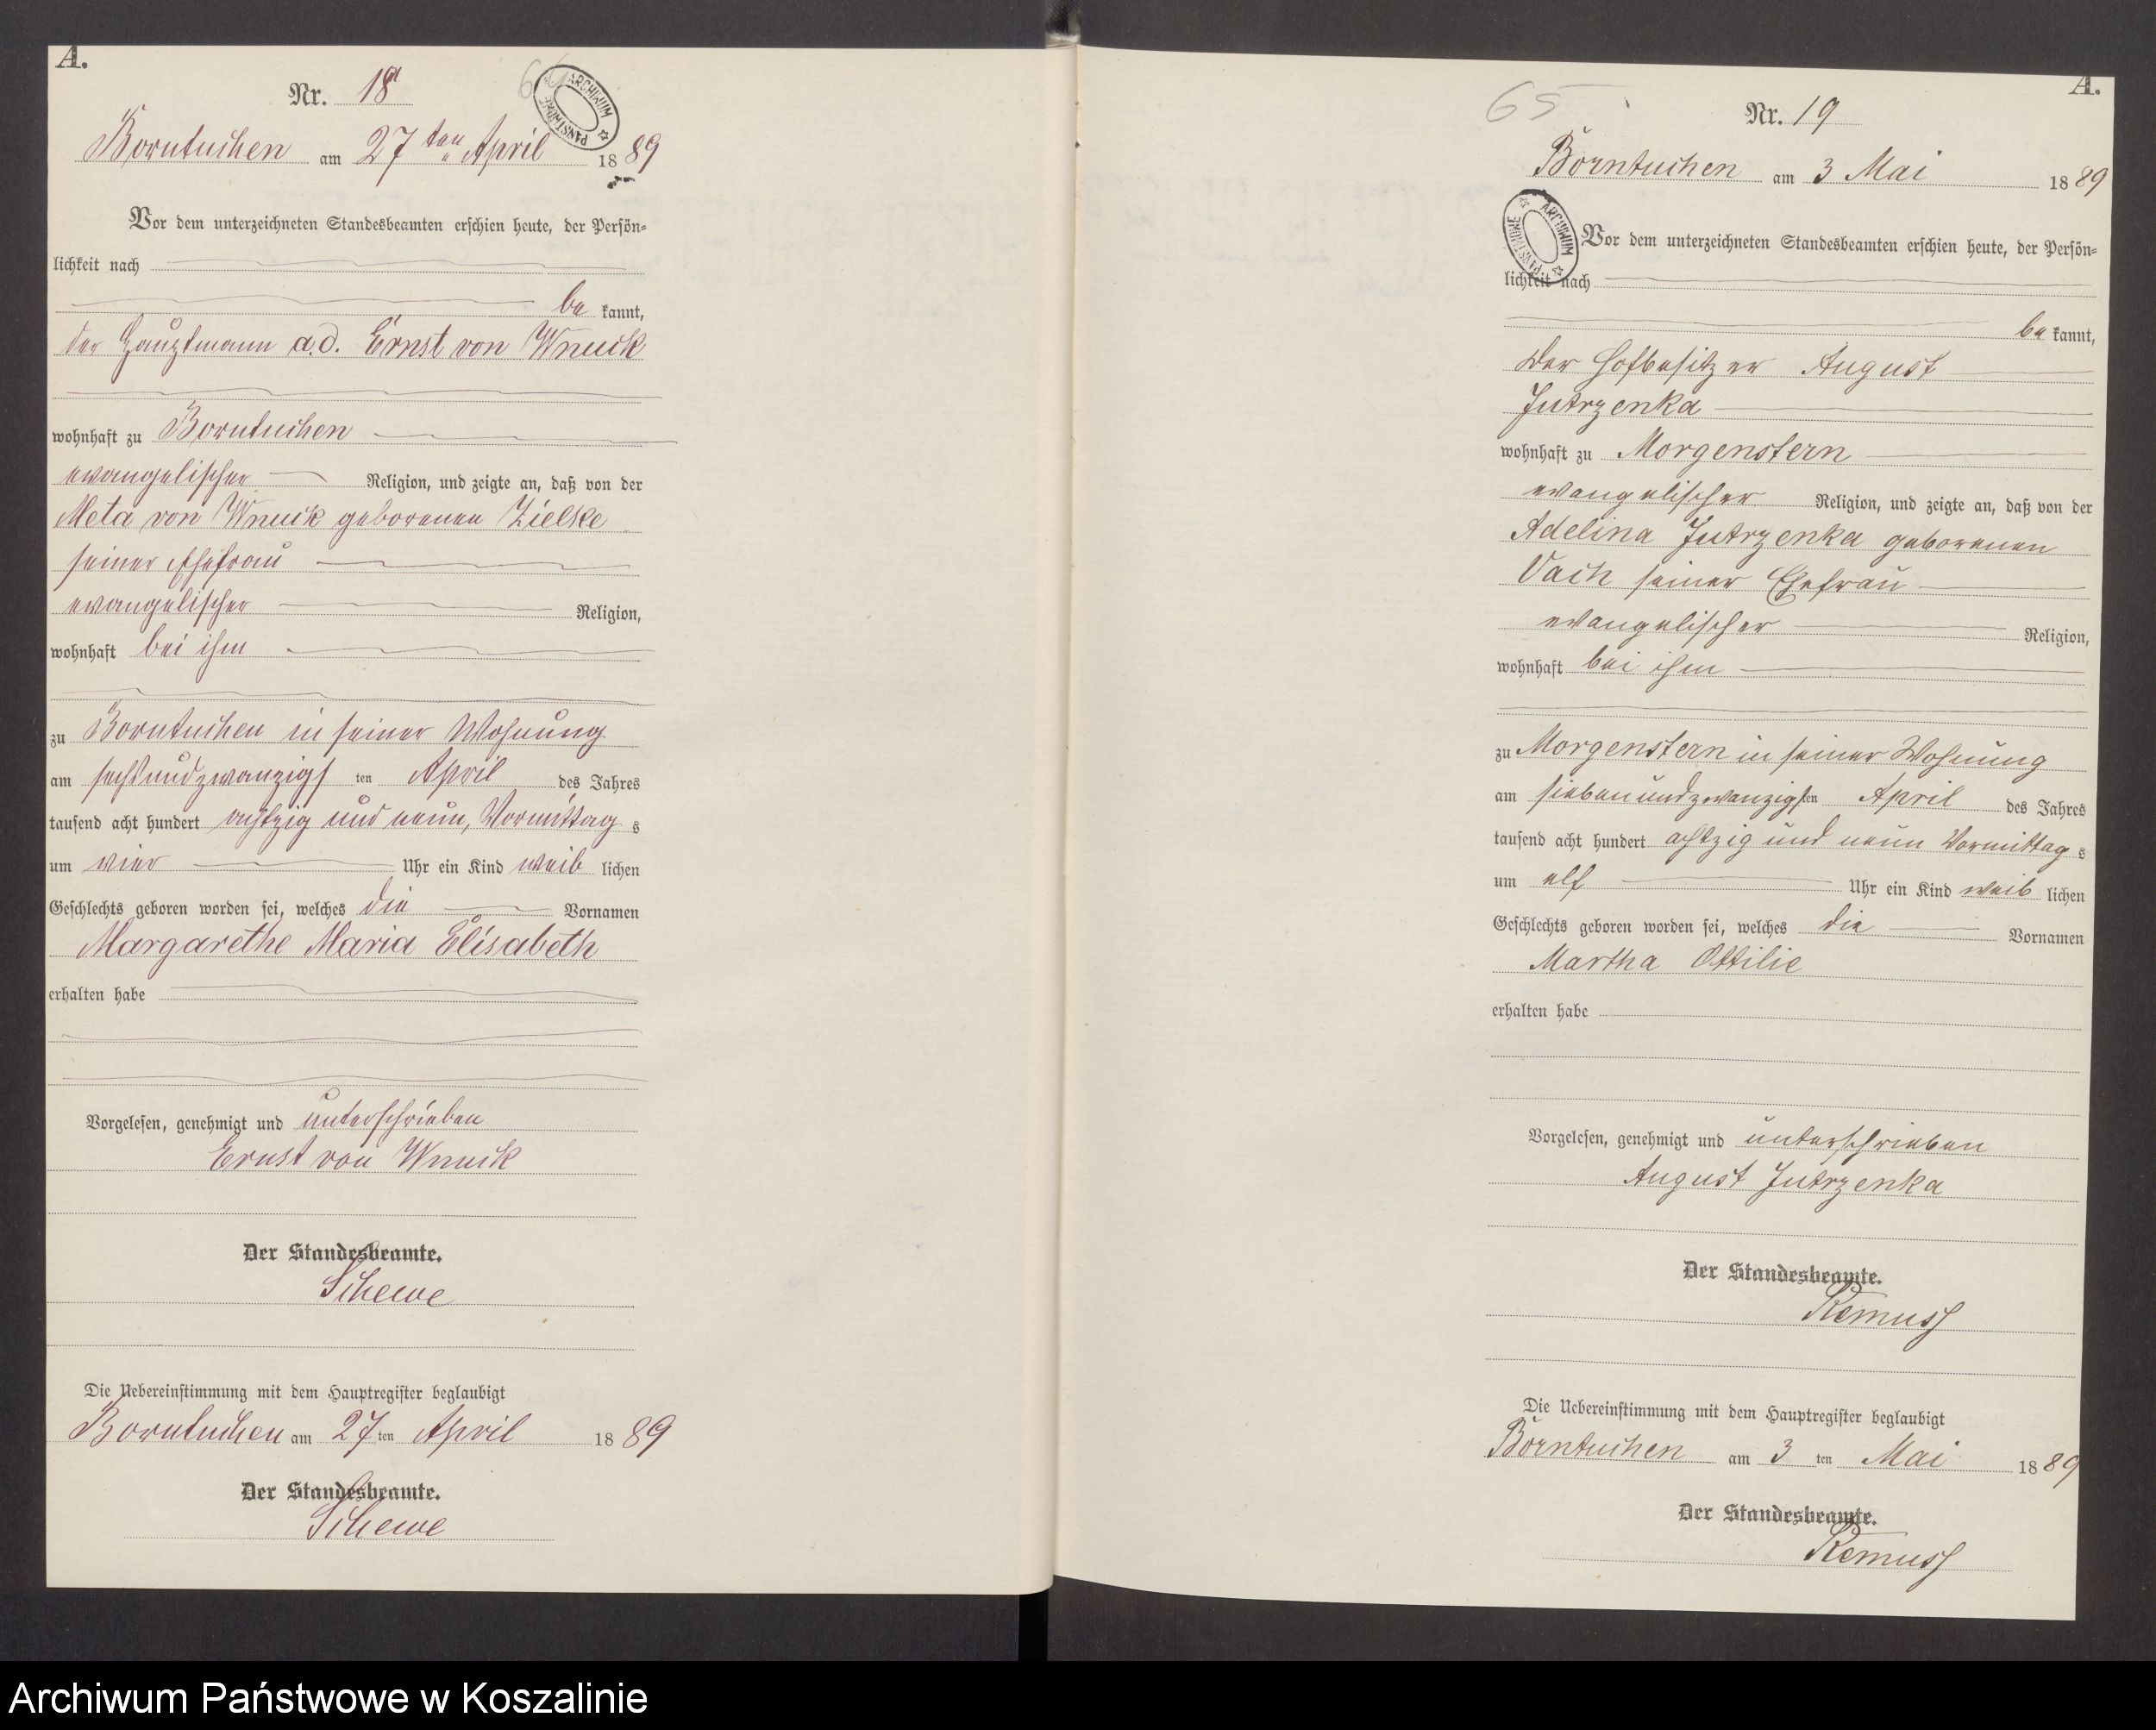 A.
Nr. 18
Borntuchen am 27ten April 1889
Vor dem unterzeichneten Standesbeamten erschien heute, der Persön=
lichkeit nach
be kannt,
der Hauptmann a.d. Ernst von Wnuck
wohnhaft zu Borntuchen
evangelischer Religion, und zeigte an, daß von der
Meta von Wnuck geborenen Zielske
seiner Ehefrau
evangelischer Religion,
wohnhaft bei ihm
zu Borntuchen in seiner Wohnung
am sechsundzwanzigs ten April des Jahres
tausend acht hundert achtzig und neun, Vormittag s
um vier Uhr ein Kind weib lichen
Geschlechts geboren worden sei, welches die Vornamen
Margarethe Maria Elisabeth
erhalten habe
Vorgelesen, genehmigt und unterschrieben
Ernst von Wnuck
Der Standesbeamte.
Schewe
Die Uebereinstimmung mit dem Hauptregister beglaubigt
Borntuchen am 27 ten April 1889
Der Standesbeamte.
Schewe
ARCHIWUM PAŃSTWOWE
A.
65
Nr. 19
Borntuchen am 3 Mai 1889
ARCHIWUM PAŃSTWOWE
Vor dem unterzeichneten Standesbeamten erschien heute, der Persön=
lichkeit nach
be kannt,
der Hofbesitzer August
Jutrzenka
wohnhaft zu Morgenstern
evangelischer Religion, und zeigte an, daß von der
Adelina Jutrzenka geborenen
Vach seiner Ehefrau
evangelischer Religion,
wohnhaft bei ihm
zu Morgenstern in seiner Wohnung
am siebenundzwanzigsten April des Jahres
tausend acht hundert achtzig und neun Vormittag s
um elf Uhr ein Kind weib lichen
Geschlechts geboren worden sei, welches die Vornamen
Martha Ottilie
erhalten habe
Vorgelesen, genehmigt und unterschrieben
August Jutrzenka
Der Standesbeamte.
Remus
Die Uebereinstimmung mit dem Hauptregister beglaubigt
Borntuchen am 3 ten Mai 1889
Der Standesbeamte.
Remus
Archiwum Państwowe w Koszalinie